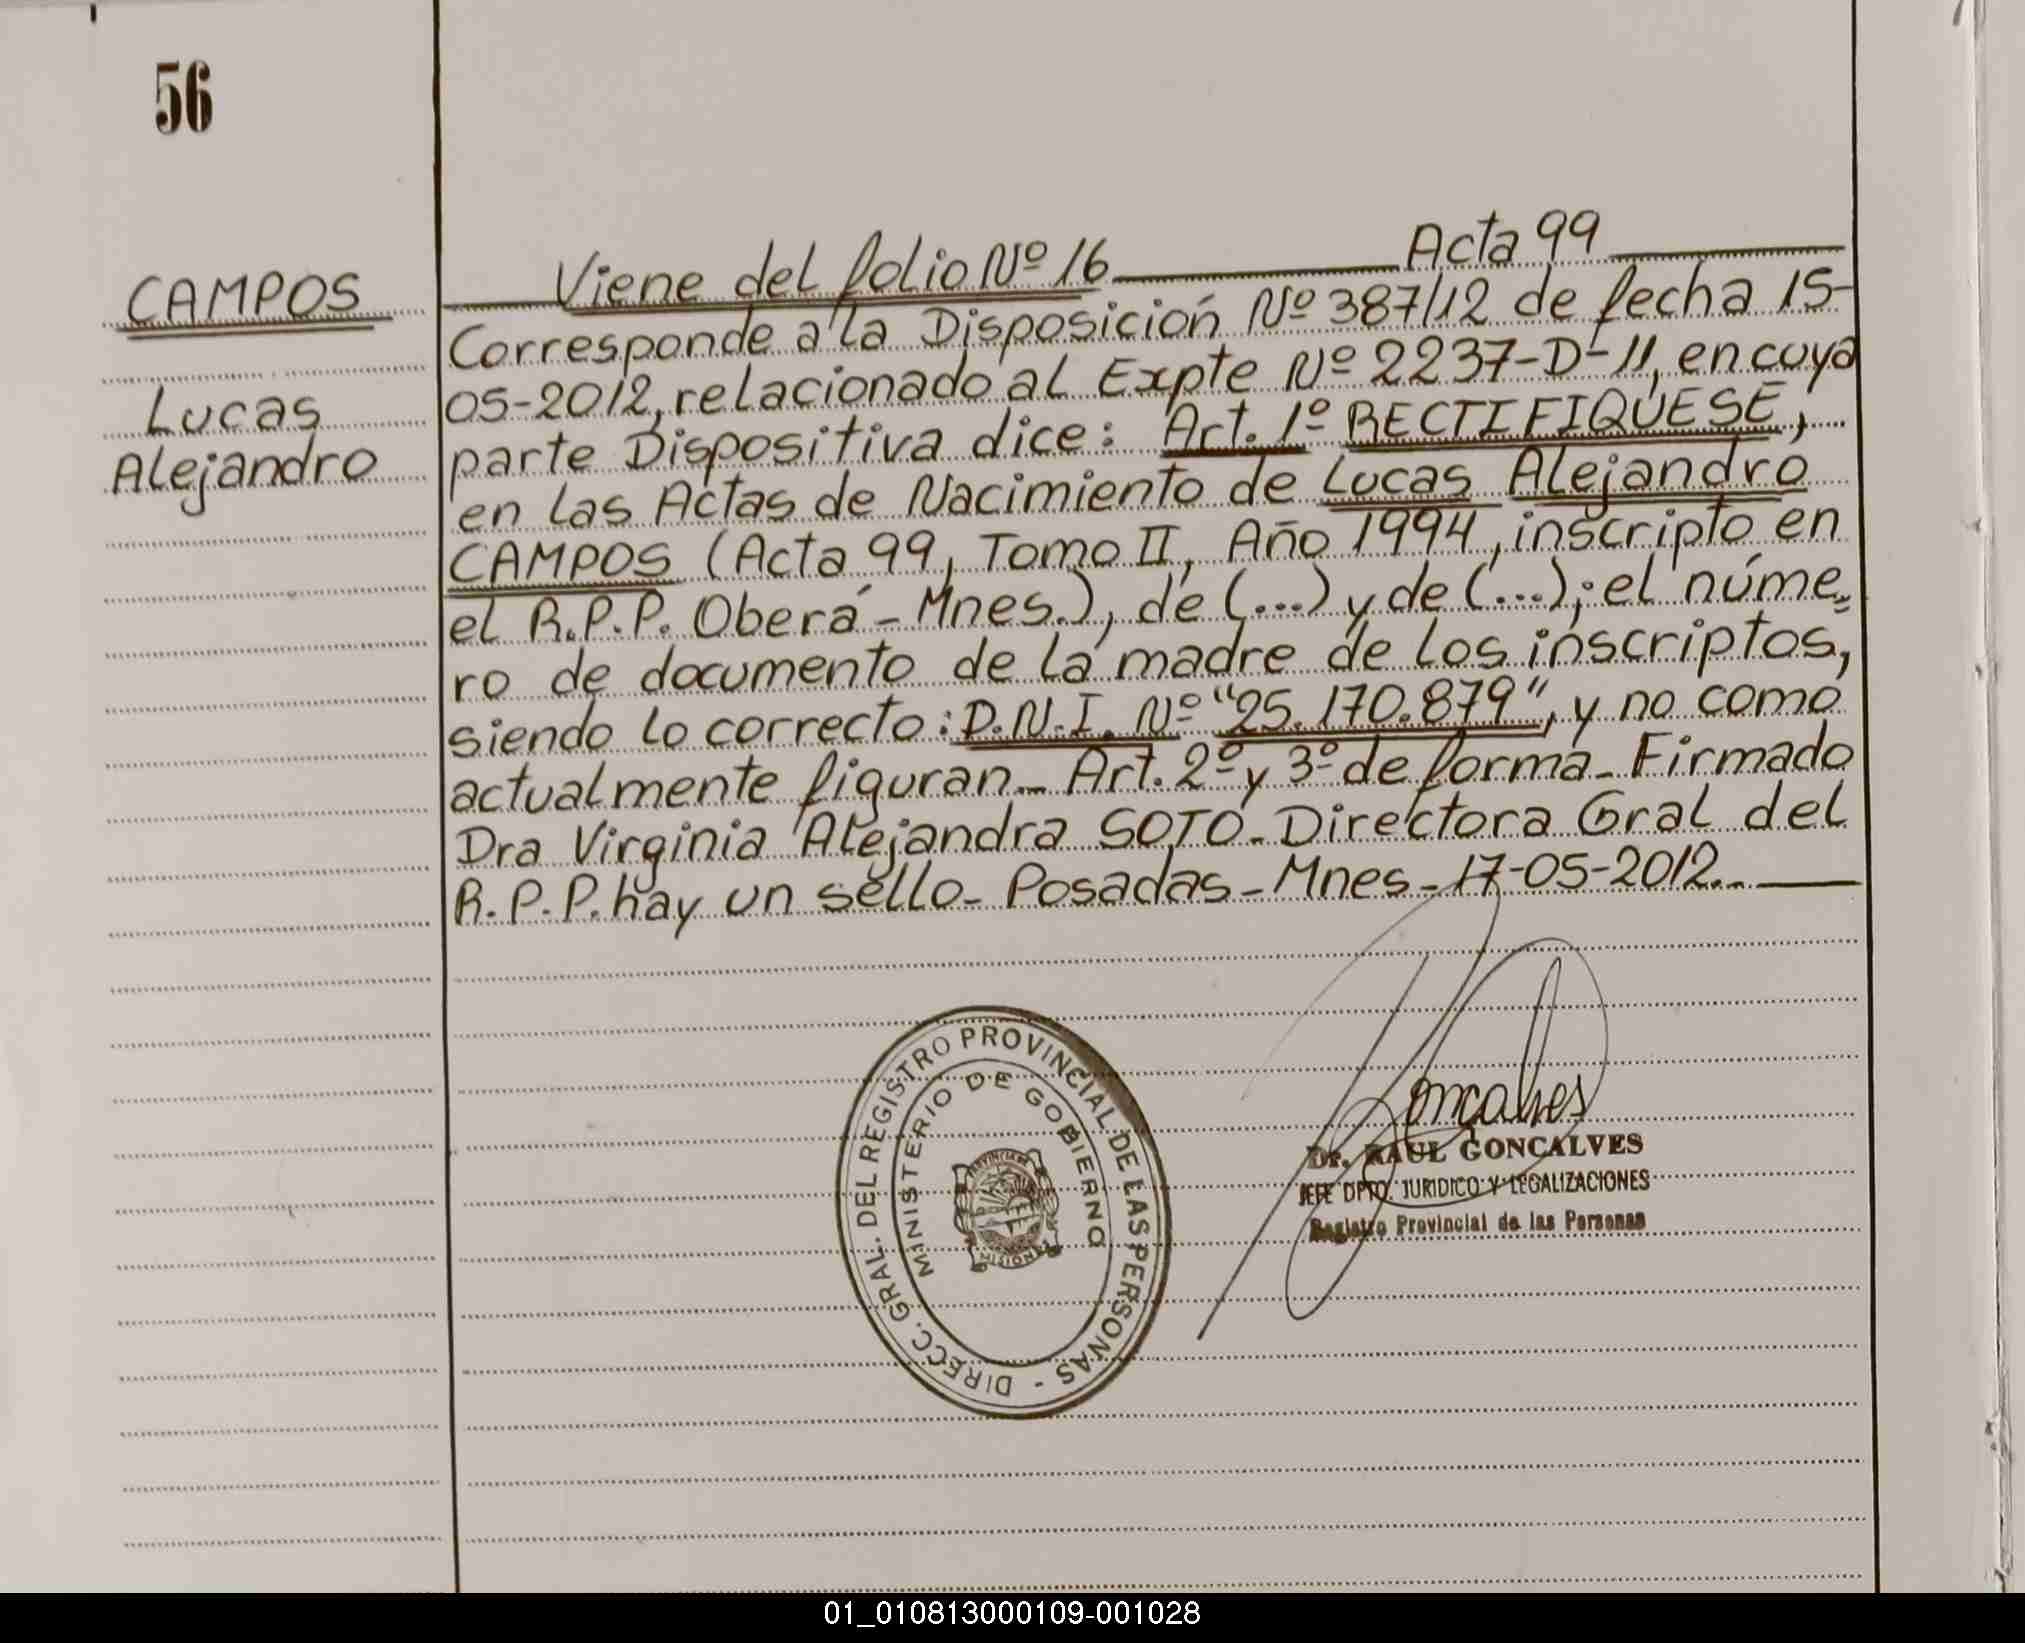 56
CAMPOS
Lucas
Alejandro
Viene del folio Nº 16 Acta 99
Corresponde a la Disposición Nº 387/12 de fecha 15-
05-2012, relacionado al Expte Nº 2237-D-11, en cuya
parte Dispositiva dice: Art. 1º RECTIFIQUESE,
en las Actas de Nacimiento de Lucas Alejandro
CAMPOS (Acta 99, Tomo II, Año 1994, inscripto en
el R.P.P. Oberá - Mnes.), de (...) y de (...); el núme=
ro de documento de la madre de los inscriptos,
siendo lo correcto: D.N.I. Nº "25.170.879", y no como
actualmente figuran_ Art. 2º y 3º de forma_ Firmado
Dra Virginia Alejandra SOTO_ Directora Gral del
R.P.P. hay un sello_ Posadas_ Mnes_ 17-05-2012._
DIRECC. GRAL. DEL REGISTRO PROVINCIAL DE LAS PERSONAS -
MINISTERIO DE GOBIERNO
PROVINCIA DE
MISIONES
Goncalves
Dr. RAUL GONCALVES
JEFE DPTO. JURIDICO Y LEGALIZACIONES
Registro Provincial de las Personas
01_010813000109-001028